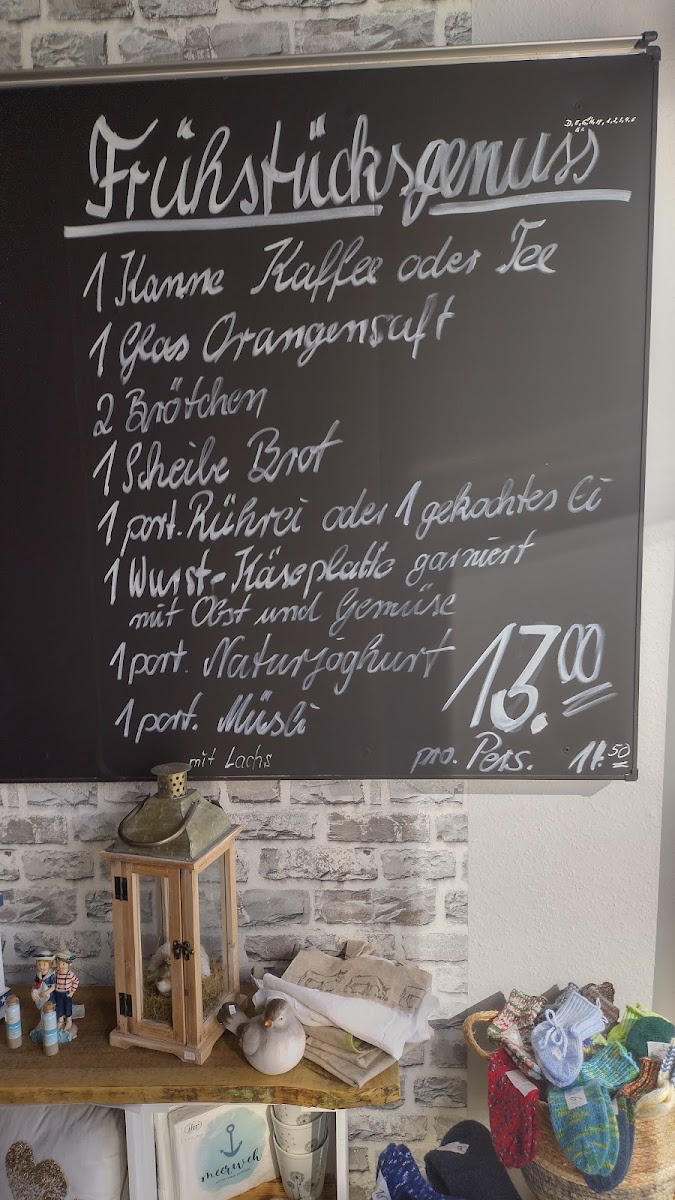 Frühstücksgenuss
1 Kanne Kaffee oder Tee
1 Glas Orangensaft
2 Brötchen
1 Scheibe Brot
1 port. Rührei oder 1 gekochtes Ei
1 Wurst-Käseplatte garniert
mit Obst und Gemüse
1 port. Naturjoghurt
1 port. Müsli
13.00
mit Lachs
pro. Pers.
meerweh